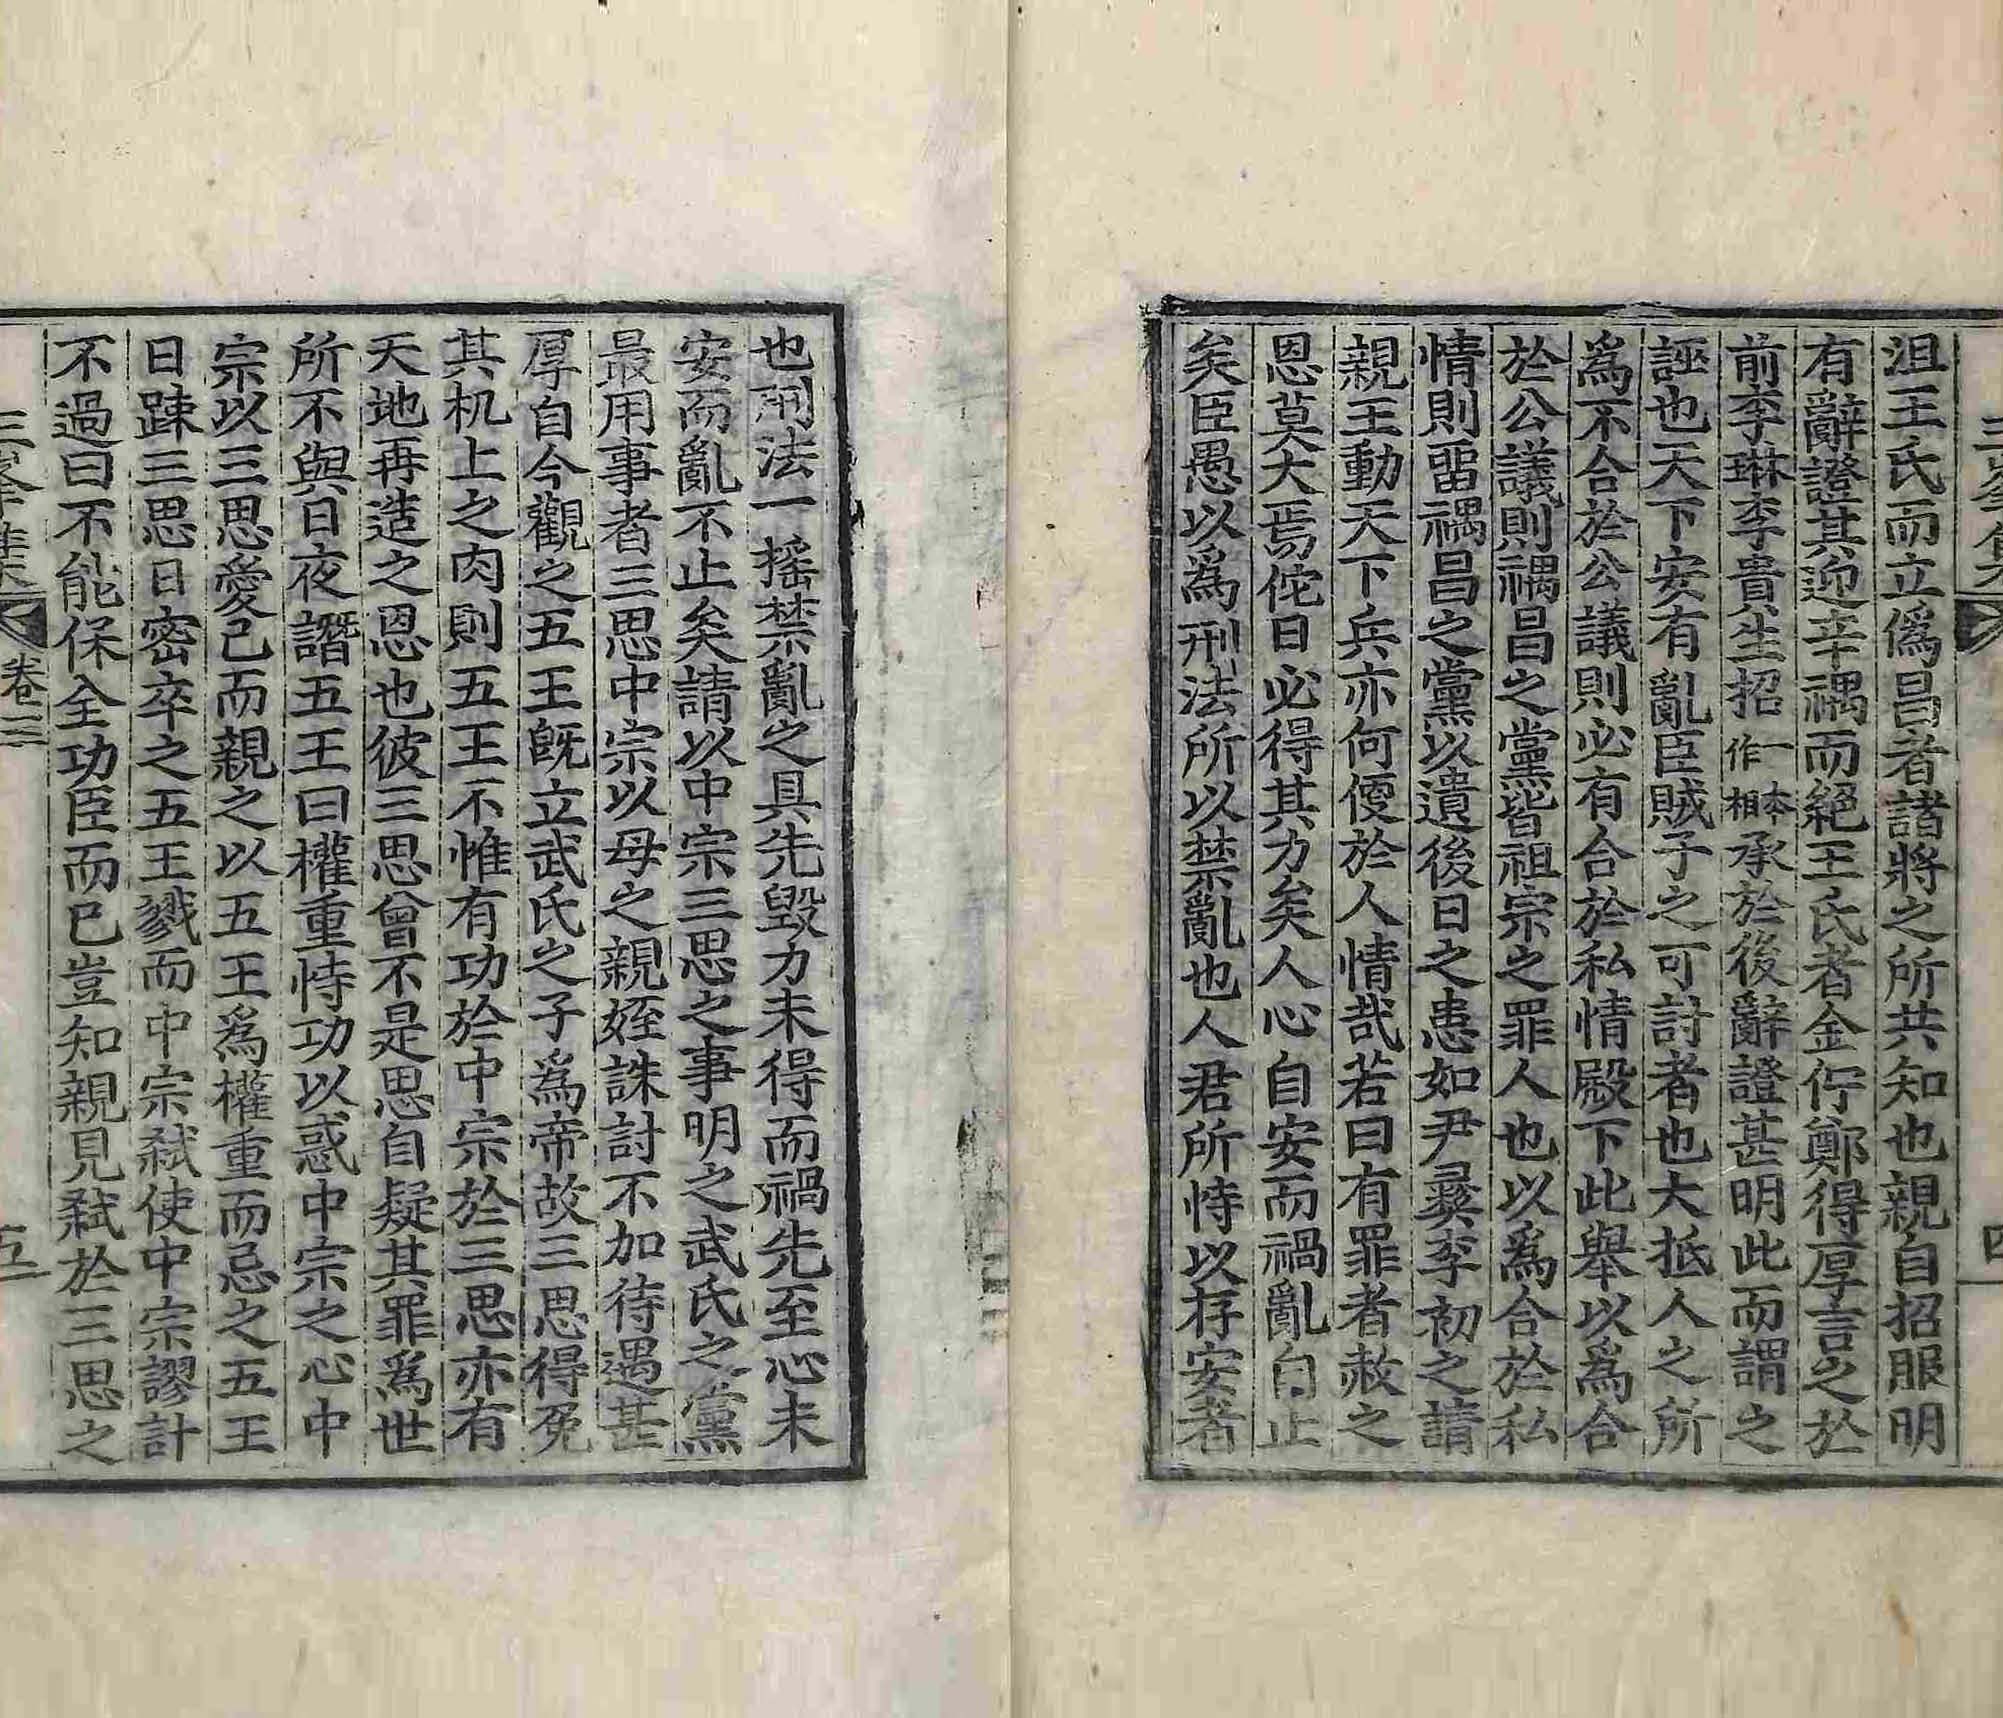 沮王氏而立僞昌者諸將之所共知也親自招服明
有辭證其迎辛禑而絕王氏者金佇鄭得厚言之於
前李琳李貴生招一本作相承於後辭證甚明此而謂之
誣也天下安有亂臣賊子之可討者也大抵人之所
爲不合於公議則必有合於私情殿下此舉以爲合
於公議則禑昌之黨皆祖宗之罪人也以爲合於私
情則留禑昌之黨以遺後日之患如尹彛李初之請
親王動天下兵亦何便於人情哉若曰有罪者赦之
恩莫大焉佗日必得其力矣人心自安而禍亂自止
矣臣愚以爲刑法所以禁亂也人君所恃以存安者
也刑法一搖禁亂之具先毀力未得而禍先至心未
安而亂不止矣請以中宗三思之事明之武氏之黨
最用事者三思中宗以母之親姪誅討不加待遇甚
厚自今觀之五王旣立武氏之子爲帝故三思得免
其机上之肉則五王不惟有功於中宗於三思亦有
天地再造之恩也彼三思曾不是思自疑其罪爲世
所不與日夜譖五王曰權重恃功以惑中宗之心中
宗以三思愛己而親之以五王爲權重而忌之五王
日踈三思日密卒之五王戮而中宗弑使中宗謬計
不過曰不能保全功臣而已豈知親見弑於三思之
三峯集
卷三
五
四